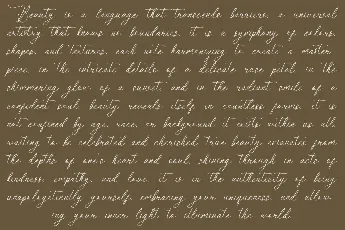 "Beauty is a language that transcends barriers, a universal
artistry that knows no boundaries. it is a symphony of colors,
shapes, and textures, each note harmonizing to create a master
piece. in the intricate details of a delicate rose petal, in the
shimmering glow of a sunset, and in the radiant smile of a
confident soul, beauty reveals itself in countless forms. it is
not confined by age, race, or background it exists within us all,
waiting to be celebrated and cherished true beauty resonates from
the depths of one's heart and soul, shining through in acts of
kindness, empathy, and love. it is in the authenticity of being
unapologetically yourself, embracing your uniqueness, and allow
ing your inner light to illuminate the world.